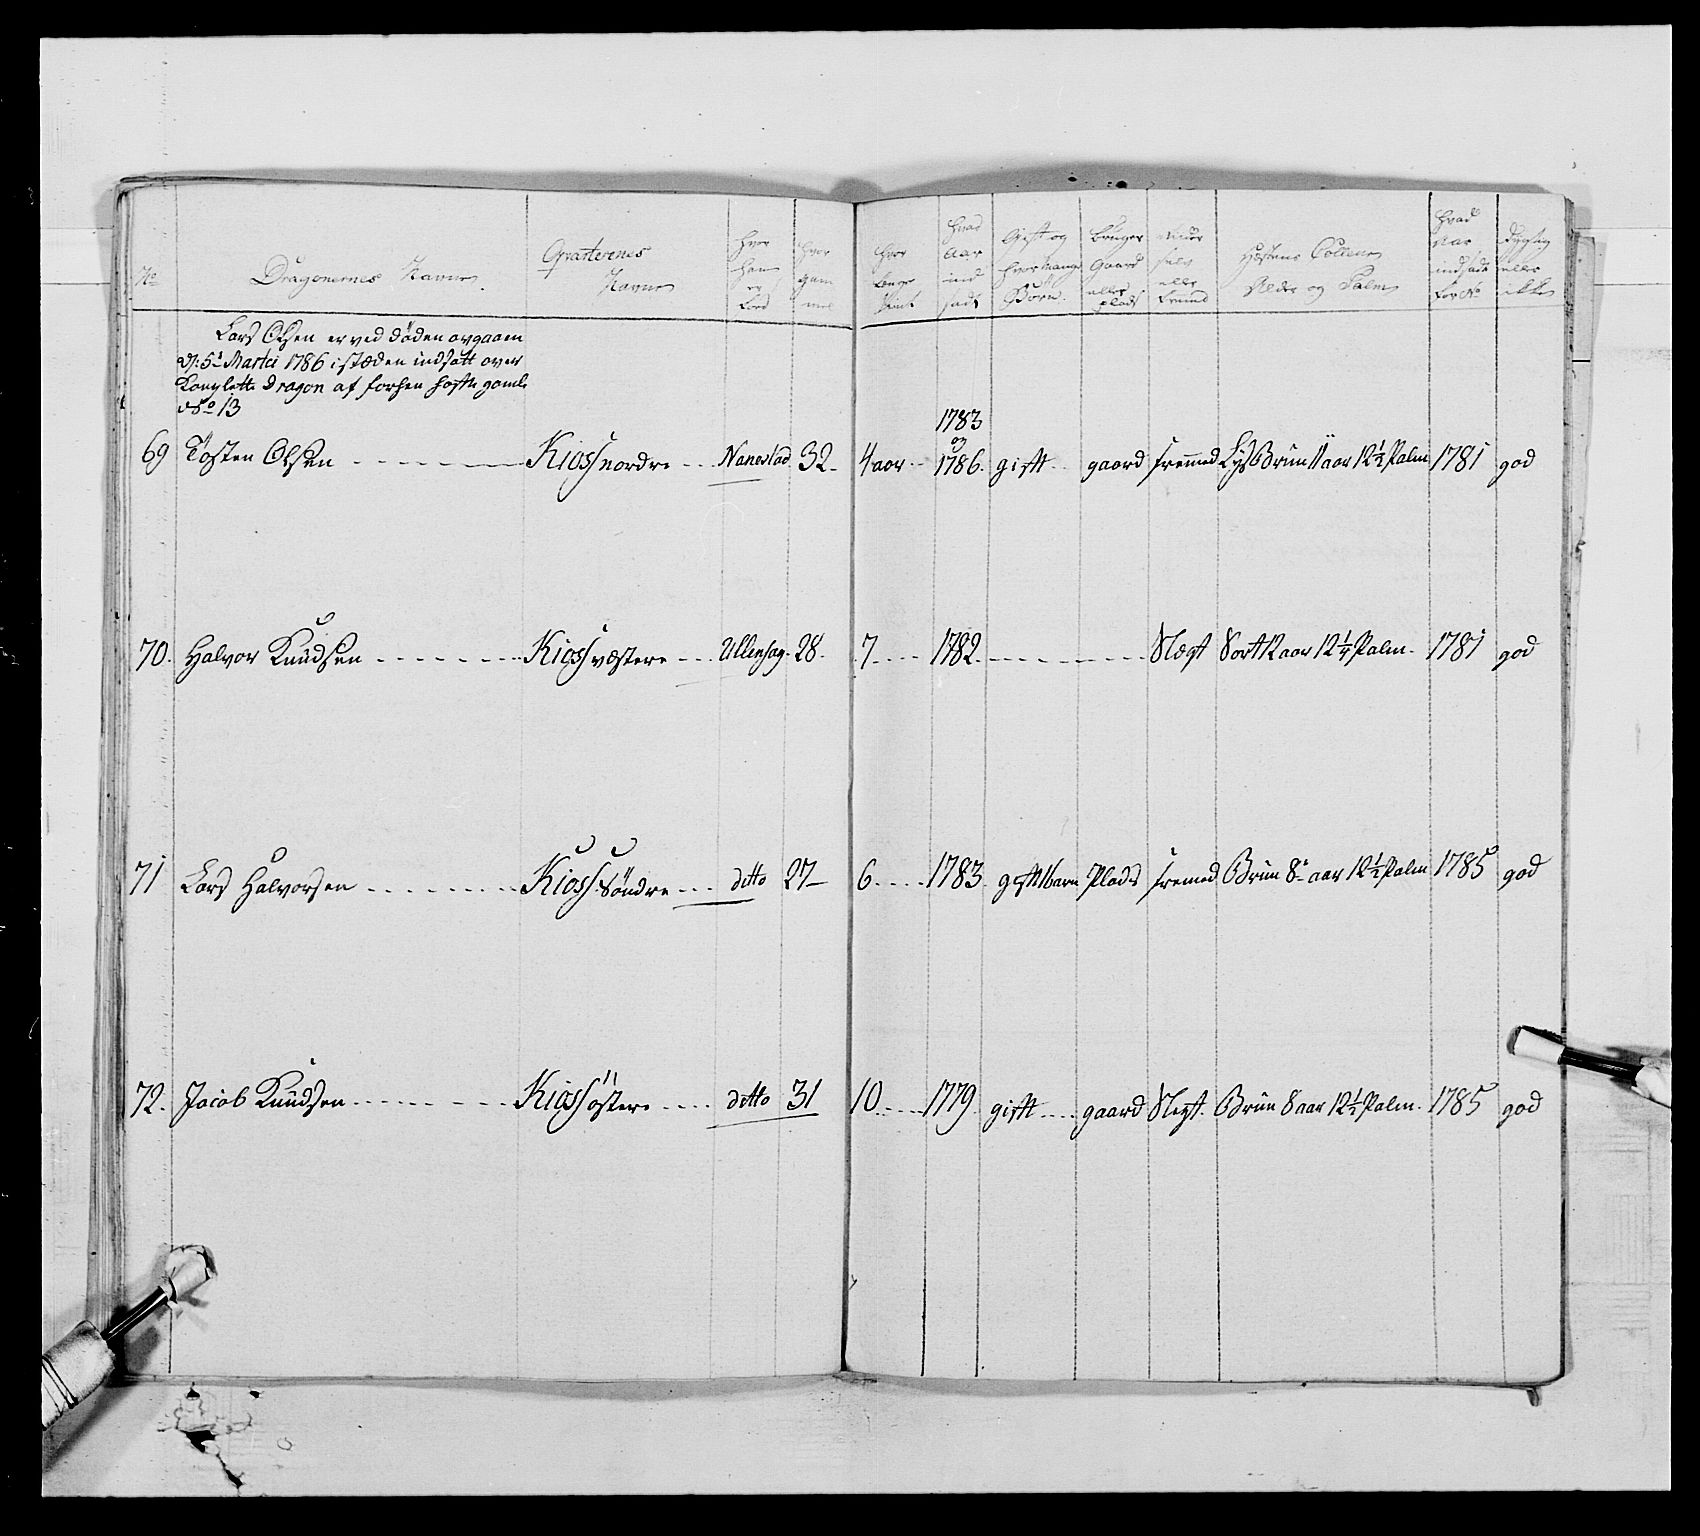 No
Dragonernes Navne
Qvarterenes Navne
Hvor Han er Född
Hvor gam mel
Hvor Længe Tient
Hvad Aar ind sadt
Gift og hvor mange Börn.
Bruger Gaard eller plads
selv eller Fremd
Hæstens Couleur Alder og Palm
Hvad Aar indsadt for No
Dygtig eller ikke
Lars Olsen er ved döden avgaaen
d: 5t Martzi 1786 i stæden indsatt over
Complette Dragon af forhen hafte gamle
No 13
69 Tosten Olsen Kioss nordre Nanestad 32 4 aar 1783 og 1786 gift gaard fremmed Lys Brun 11 aar 12½ Palm 1781 god
70. Halvor Knudsen Kioss væstere Ullensag. 28. 7 1782 Slægt Sort 12 aar 12¼ Palm. 1781 god
71 Lars Halvorsen Kioss Söndre ditto 27 6 1783 gift 1 barn Plads fremed Brun 8 aar 12½ Palm 1785 god
72. Jacob Knudsen Kioss östere ditto 31 10 1779 gift gaard Slegt Brun 8 aar 12½ Palm. 1785 god